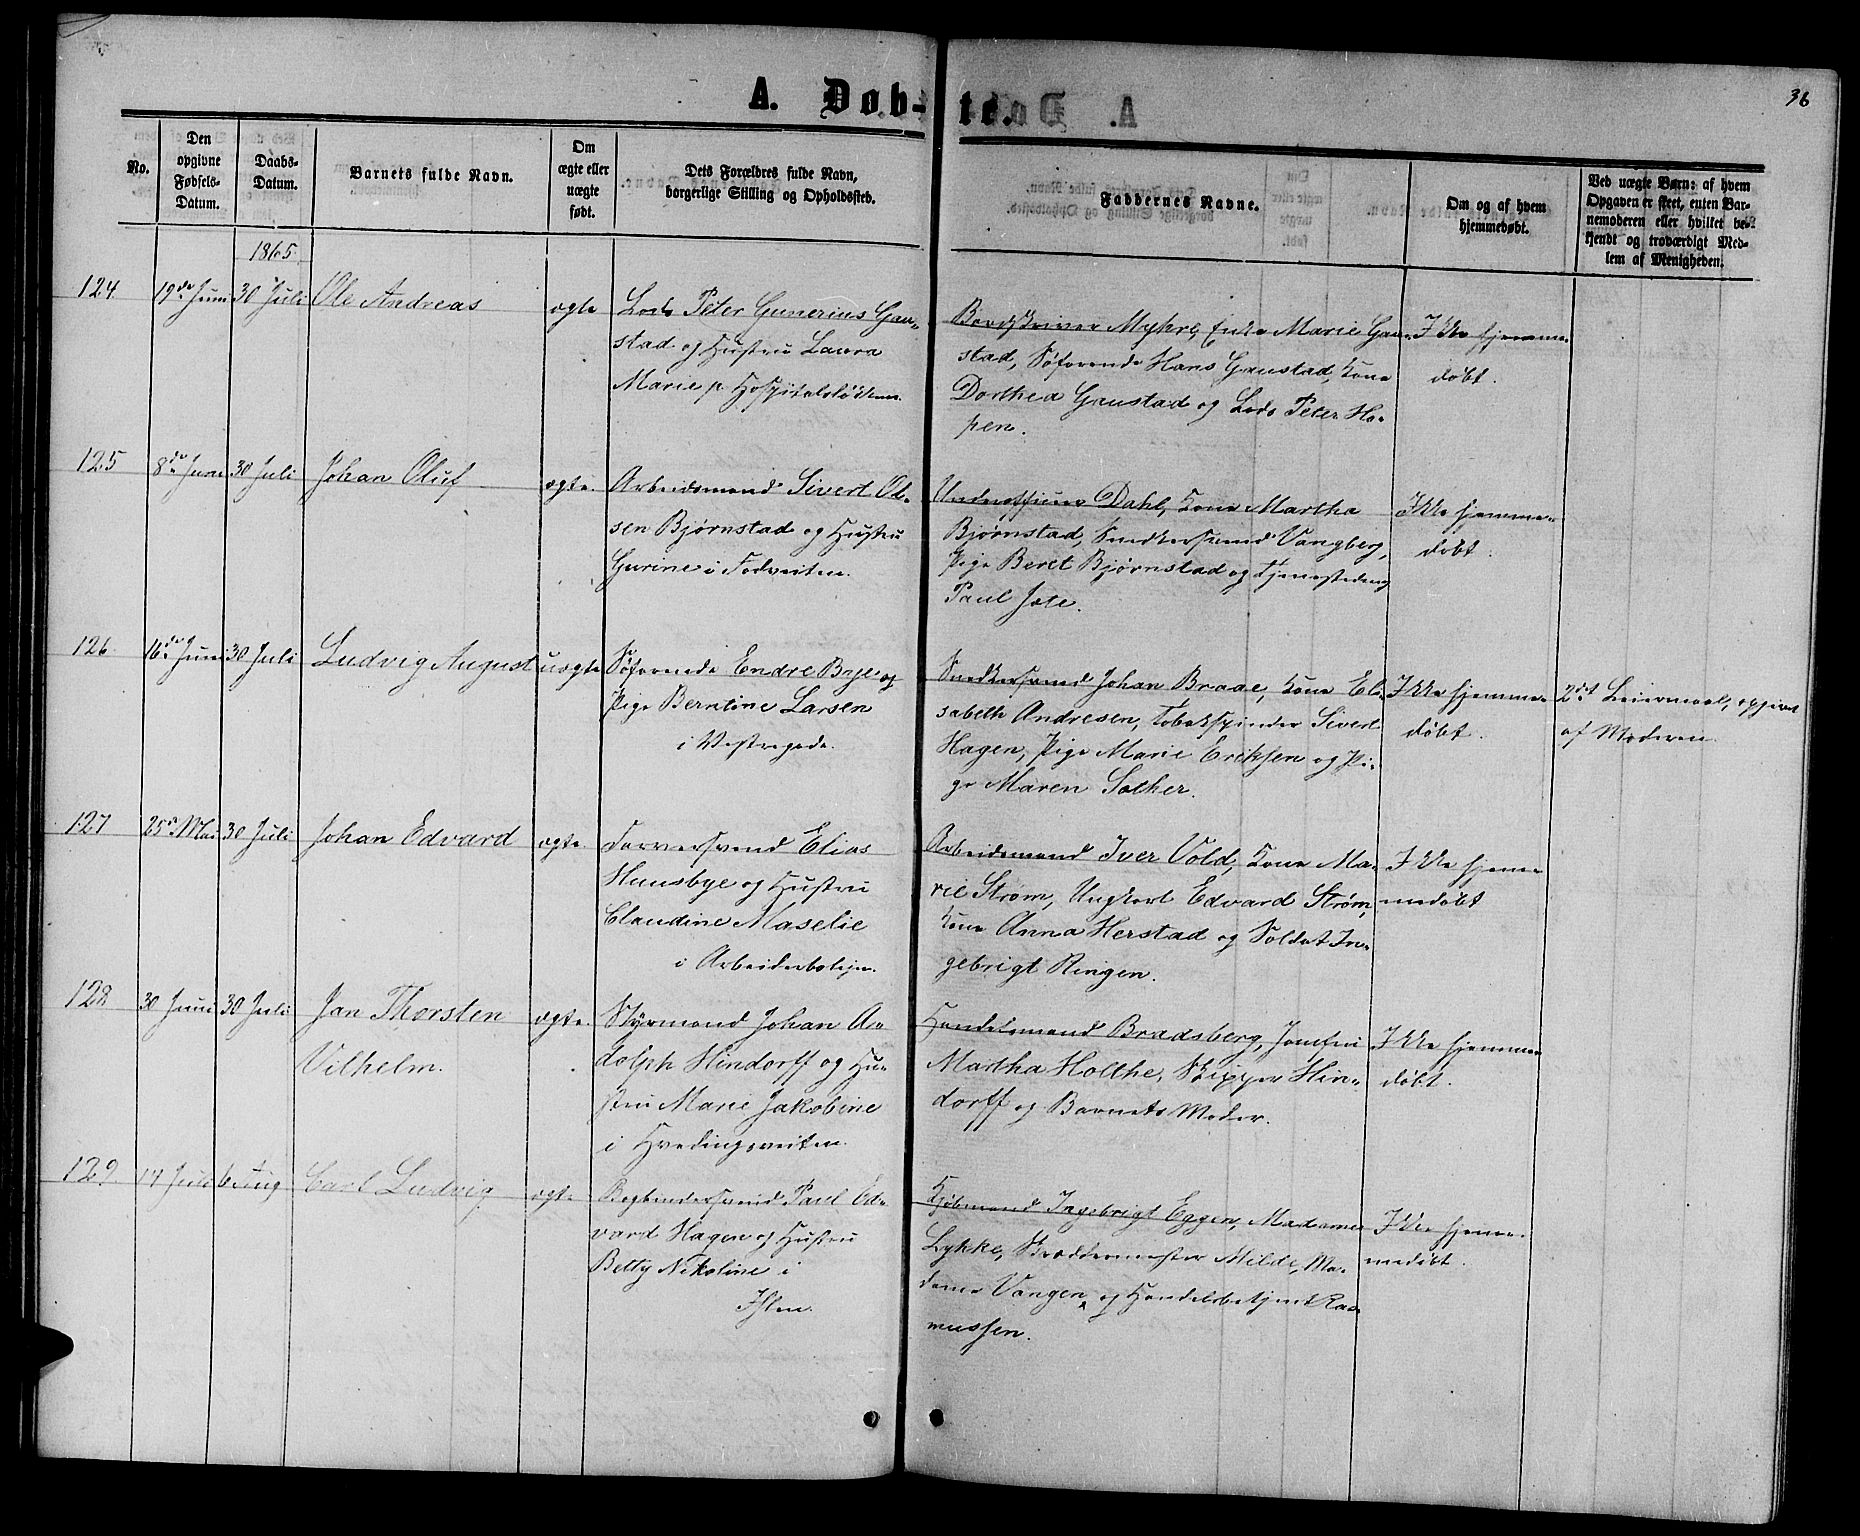 36
A. Døb- te.
No.
Den opgivne Fødsels-Datum.
Daabs-Datum.
Barnets fulde Navn.
Om ægte eller uægte født.
Dets Forældres fulde Navn, borgerlige Stilling og Opholdssted.
Faddernes Navne.
Om og af hvem hjemmedøbt.
Ved uægte Børn: af hvem Opgaven er skeet, enten Barnemoderen eller hvilket bekjendt og troværdigt Medlem af Menigheden.
1865.
124. 19de Juni 30 Juli Ole Andreas ægte
Lods Peter Gunerius Gau-
stad og Hustru Laura
Marie p. Hospitalsløkken.
Bordskriver Myhre, Enke Marie Gau-
stad, Søfarende Hans Gaustad, Kone
Dorthea Gaustad og Lods Peter Ho-
pen.
Ikke hjemme-
døbt.
125 8de Juni 30 Juli Johan Oluf ægte
Arbeidsmand Sivert Ol-
sen Bjørnstad og Hustru
Gurine i
Underofficier Dahl, Kone Martha
Bjørnstad, Snedkersvend Vangberg,
Pige Beret Bjørnstad og Tjenestedreng
Paul
Ikke hjemme-
døbt.
126. 16de Juni 30 Juli Ludvig August uægte
Søfarende Endre Bye og
Pige Berntine Larsen
i Vestregade.
Snedkersvend Johan Braae, Kone El-
sabeth Andresen, Tobakspinder Sivert
Hagen, Pige Marie Eriksen og Pi-
ge Maren Solher.
Ikke hjemme-
døbt.
2det Leiermaal, opgivet
af Moderen.
127 25de Mai 30 Juli Johan Edvard ægte
Farversvend Elias
Huusbye og Hustru
Claudine Maselie
i Arbeiderbolign.
Arbeidsmand Iver Vold, Kone Ma-
rie Strøm, Ungkarl Edvard Strøm,
Kone Anna Herstad og Soldat In-
gebrigt Ringen.
Ikke hjem-
medøbt
128 30 Juni 30 Juli Jan Thorsten ægte
Vilhelm.
Styrmand Johan A-
dolph Hindorff og Hu-
stru Marie Jakobine
i Hvedingsveiten.
Handelsmand Bradsberg, Jomfru
Martha Holthe, Skipper Hin-
dorff og Barnets Moder.
Ikke hjemme-
døbt.
129. 17 Juli 6 Aug Carl Ludvig ægte
Bogbindersvend Paul Ed-
vard Hagen og Hustru
Betty Nikoline i
Ihlen.
Kjøbmand Ingebrigt Eggen, Madame
Lykke, Skreddermester Milde, Ma-
dame Vangen og Handelsbetjent Ras-
mussen.
Ikke hjem-
medøbt.